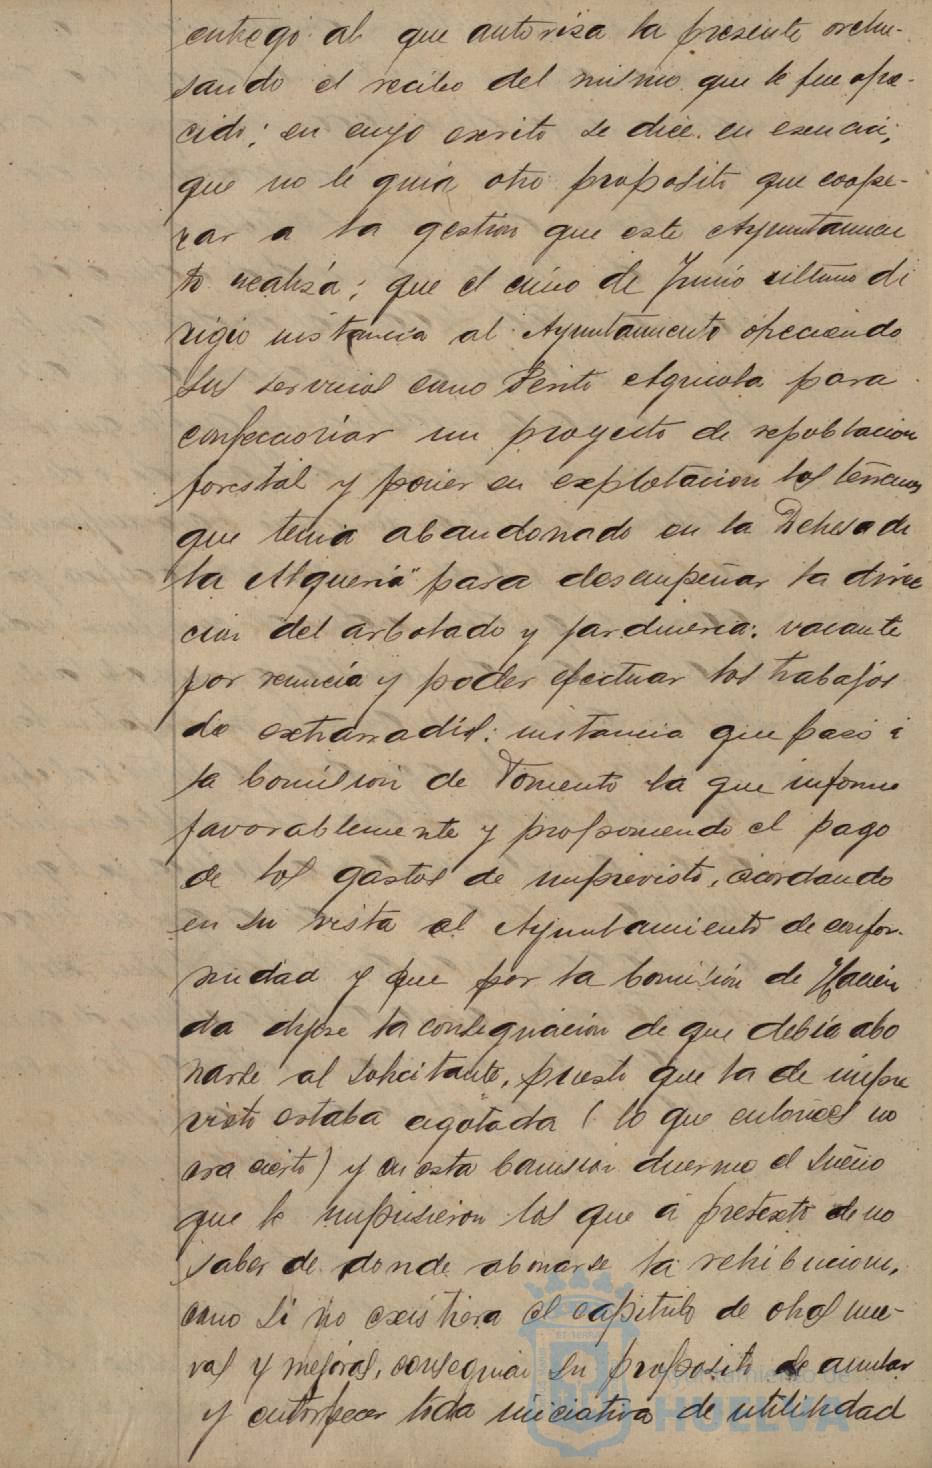 entregó al que autoriza la presente rehu-
sando el recibo del mismo que le fue ofre-
cido; en cuyo escrito se dice en esencia;
que no le guia otro proposito que coope-
rar a la gestion que este Ayuntamien
to realiza; que el cinco de Junio ultimo di
rigio instancia al Ayuntamiento ofreciendo
sus servicios como Perito Agricola para
confeccionar un proyecto de repoblacion
forestal y poner en explotacion los terrenos
que tenia abandonado en la Dehesa de
la Alqueria" para desempeñar la direc
cion del arbolado y jardineria: vacante
por renuncia y poder efectuar los trabajos
de extrarradio: instancia que pasó á
la Comision de Fomento la que informo
favorablemente y proponiendo el pago
de los gastos de imprevisto, acordando
en su vista el Ayuntamiento de confor-
midad y que por la Comisión de Hacien
da dijese la consignacion de que debia abo
narse al solicitante, puesto que la de impre
visto estaba agotada (lo que entonces no
era cierto) y en esta Comision duerme el sueño
que le impusieron los que á pretexto de no
saber de donde abonarse la retribucion,
como si no existiera el capitulo de obras nue-
vas y mejoras, conseguian su proposito de anular
y entorpecer toda iniciativa de utilidad
Ayuntamiento de
HUELVA